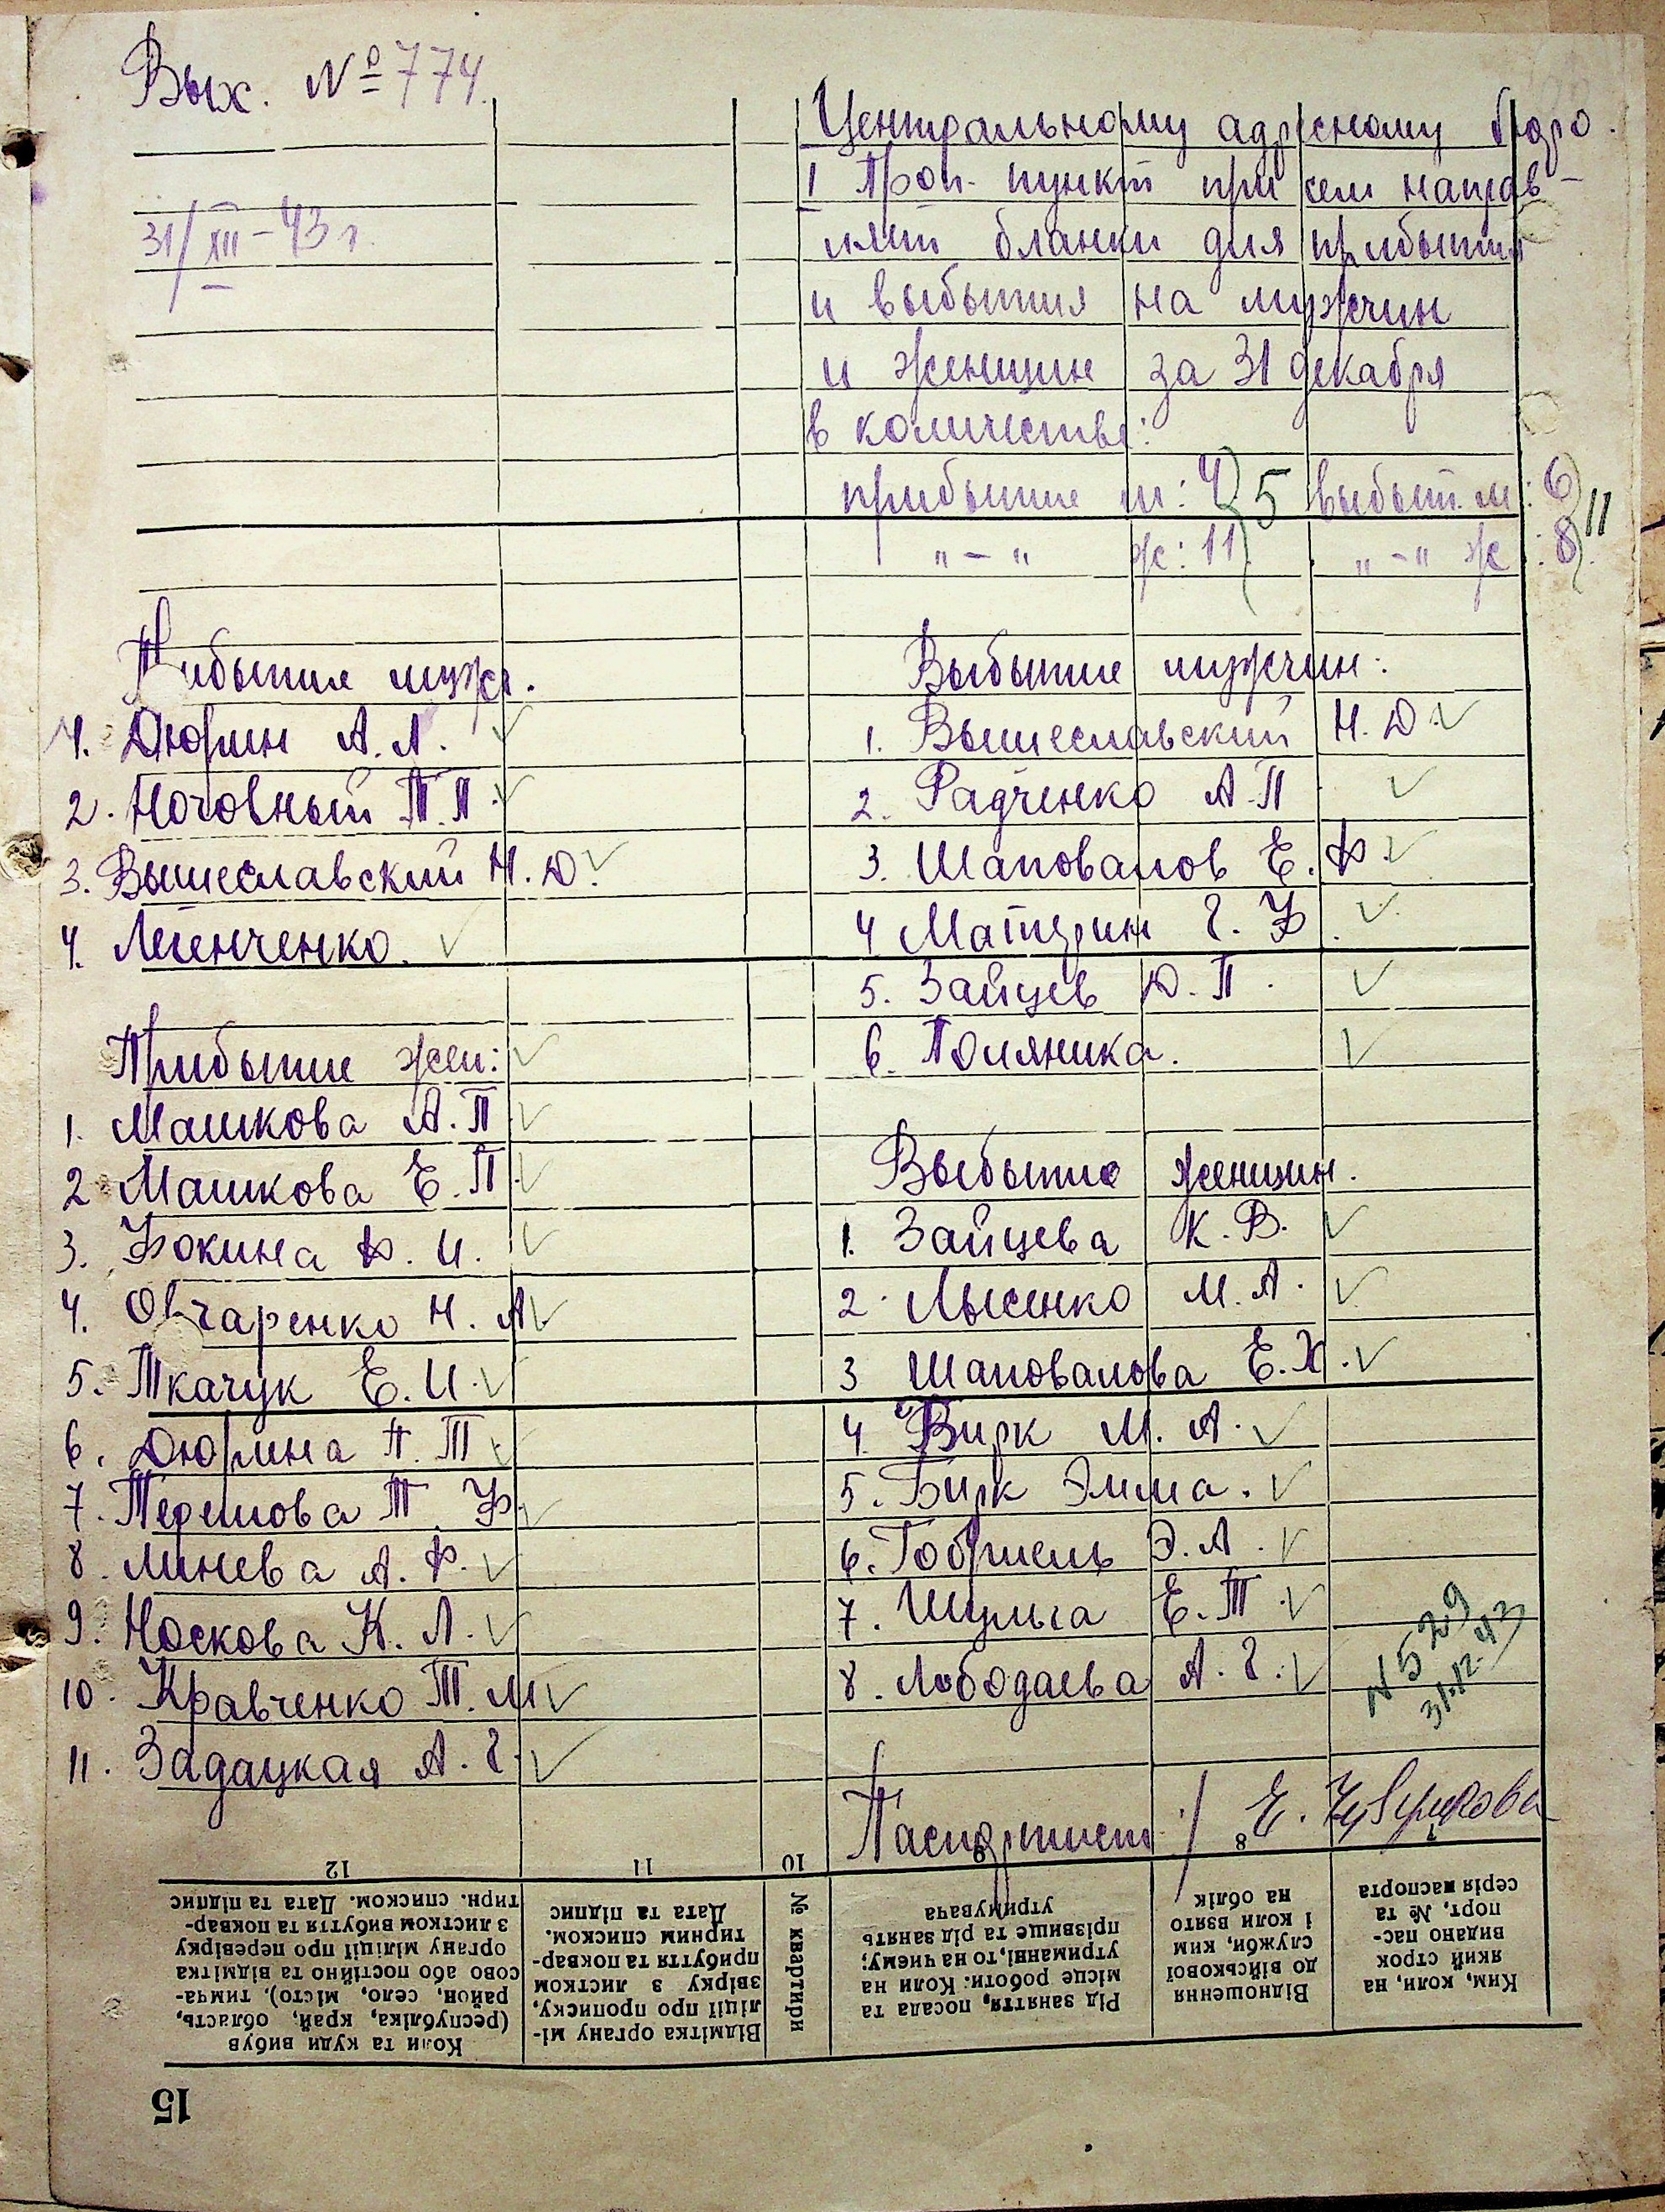 Вых. № 774.
31/XII-43 г.
Центральному адресному бюро.
1 Проп. пункт при сем направ-
ляет бланки для прибытия
и выбытия на мужчин
и женщин за 31 декабря
в количестве:
прибытие м: 4 } 5 выбыт. м: 6 } 11
"-" ж: 11 "-" ж: 8
Прибытие мужч.
1. Дюрин А. Л.
2. Ночовный П. П.
3. Вышеславский Н. Д.
4. Легенченко.
Прибытие жен:
1. Машкова А. П
2 Машкова Е. П.
3. Фокина Ф. И.
4. Овчаренко Н. А
5. Ткачук Е. И.
6. Дюрина П. Т
7. Терешова Т. Ф.
8. Минева А. Ф.
9. Носкова К. Л.
10. Кравченко Т. М
11. Задацкая А. Г.
Выбытие мужчин:
1. Вышеславский Н. Д.
2. Радченко А. П
3. Шаповалов Е. Ф.
4 Матурин Г. Ф.
5. Зайцев Д. П.
6. Поляника.
Выбытие женщин.
1. Зайцева К. В.
2. Лысенко М. А.
3 Шаповалова Е. Х.
4. Бирк М. А.
5. Бирк Эмма.
6. Гобриель Э. А.
7. Шульга Е. Т.
8. Лободаева А. Г.
N 529
31.12.43
Паспортист / Е.
12
11
10
9
8
7
Коли та куди вибув
(республіка, край, область,
район, село, місто), тимча-
сово або постійно та відмітка
органу міліції про перевірку
з листком вибуття та поквар-
тирн. списком. Дата та підпис
Відмітка органу мі-
ліції про прописку,
звірку з листком
прибуття та поквар-
тирним списком.
Дата та підпис
№ квартири
Рід заняття, посада та
місце роботи: Коли на
утриманні, то на чиєму;
прізвище та рід занять
утримувача
Відношення
до військової
служби, ким
і коли взято
на облік
Ким, коли, на
який строк
видано пас-
порт, № та
серія паспорта
15